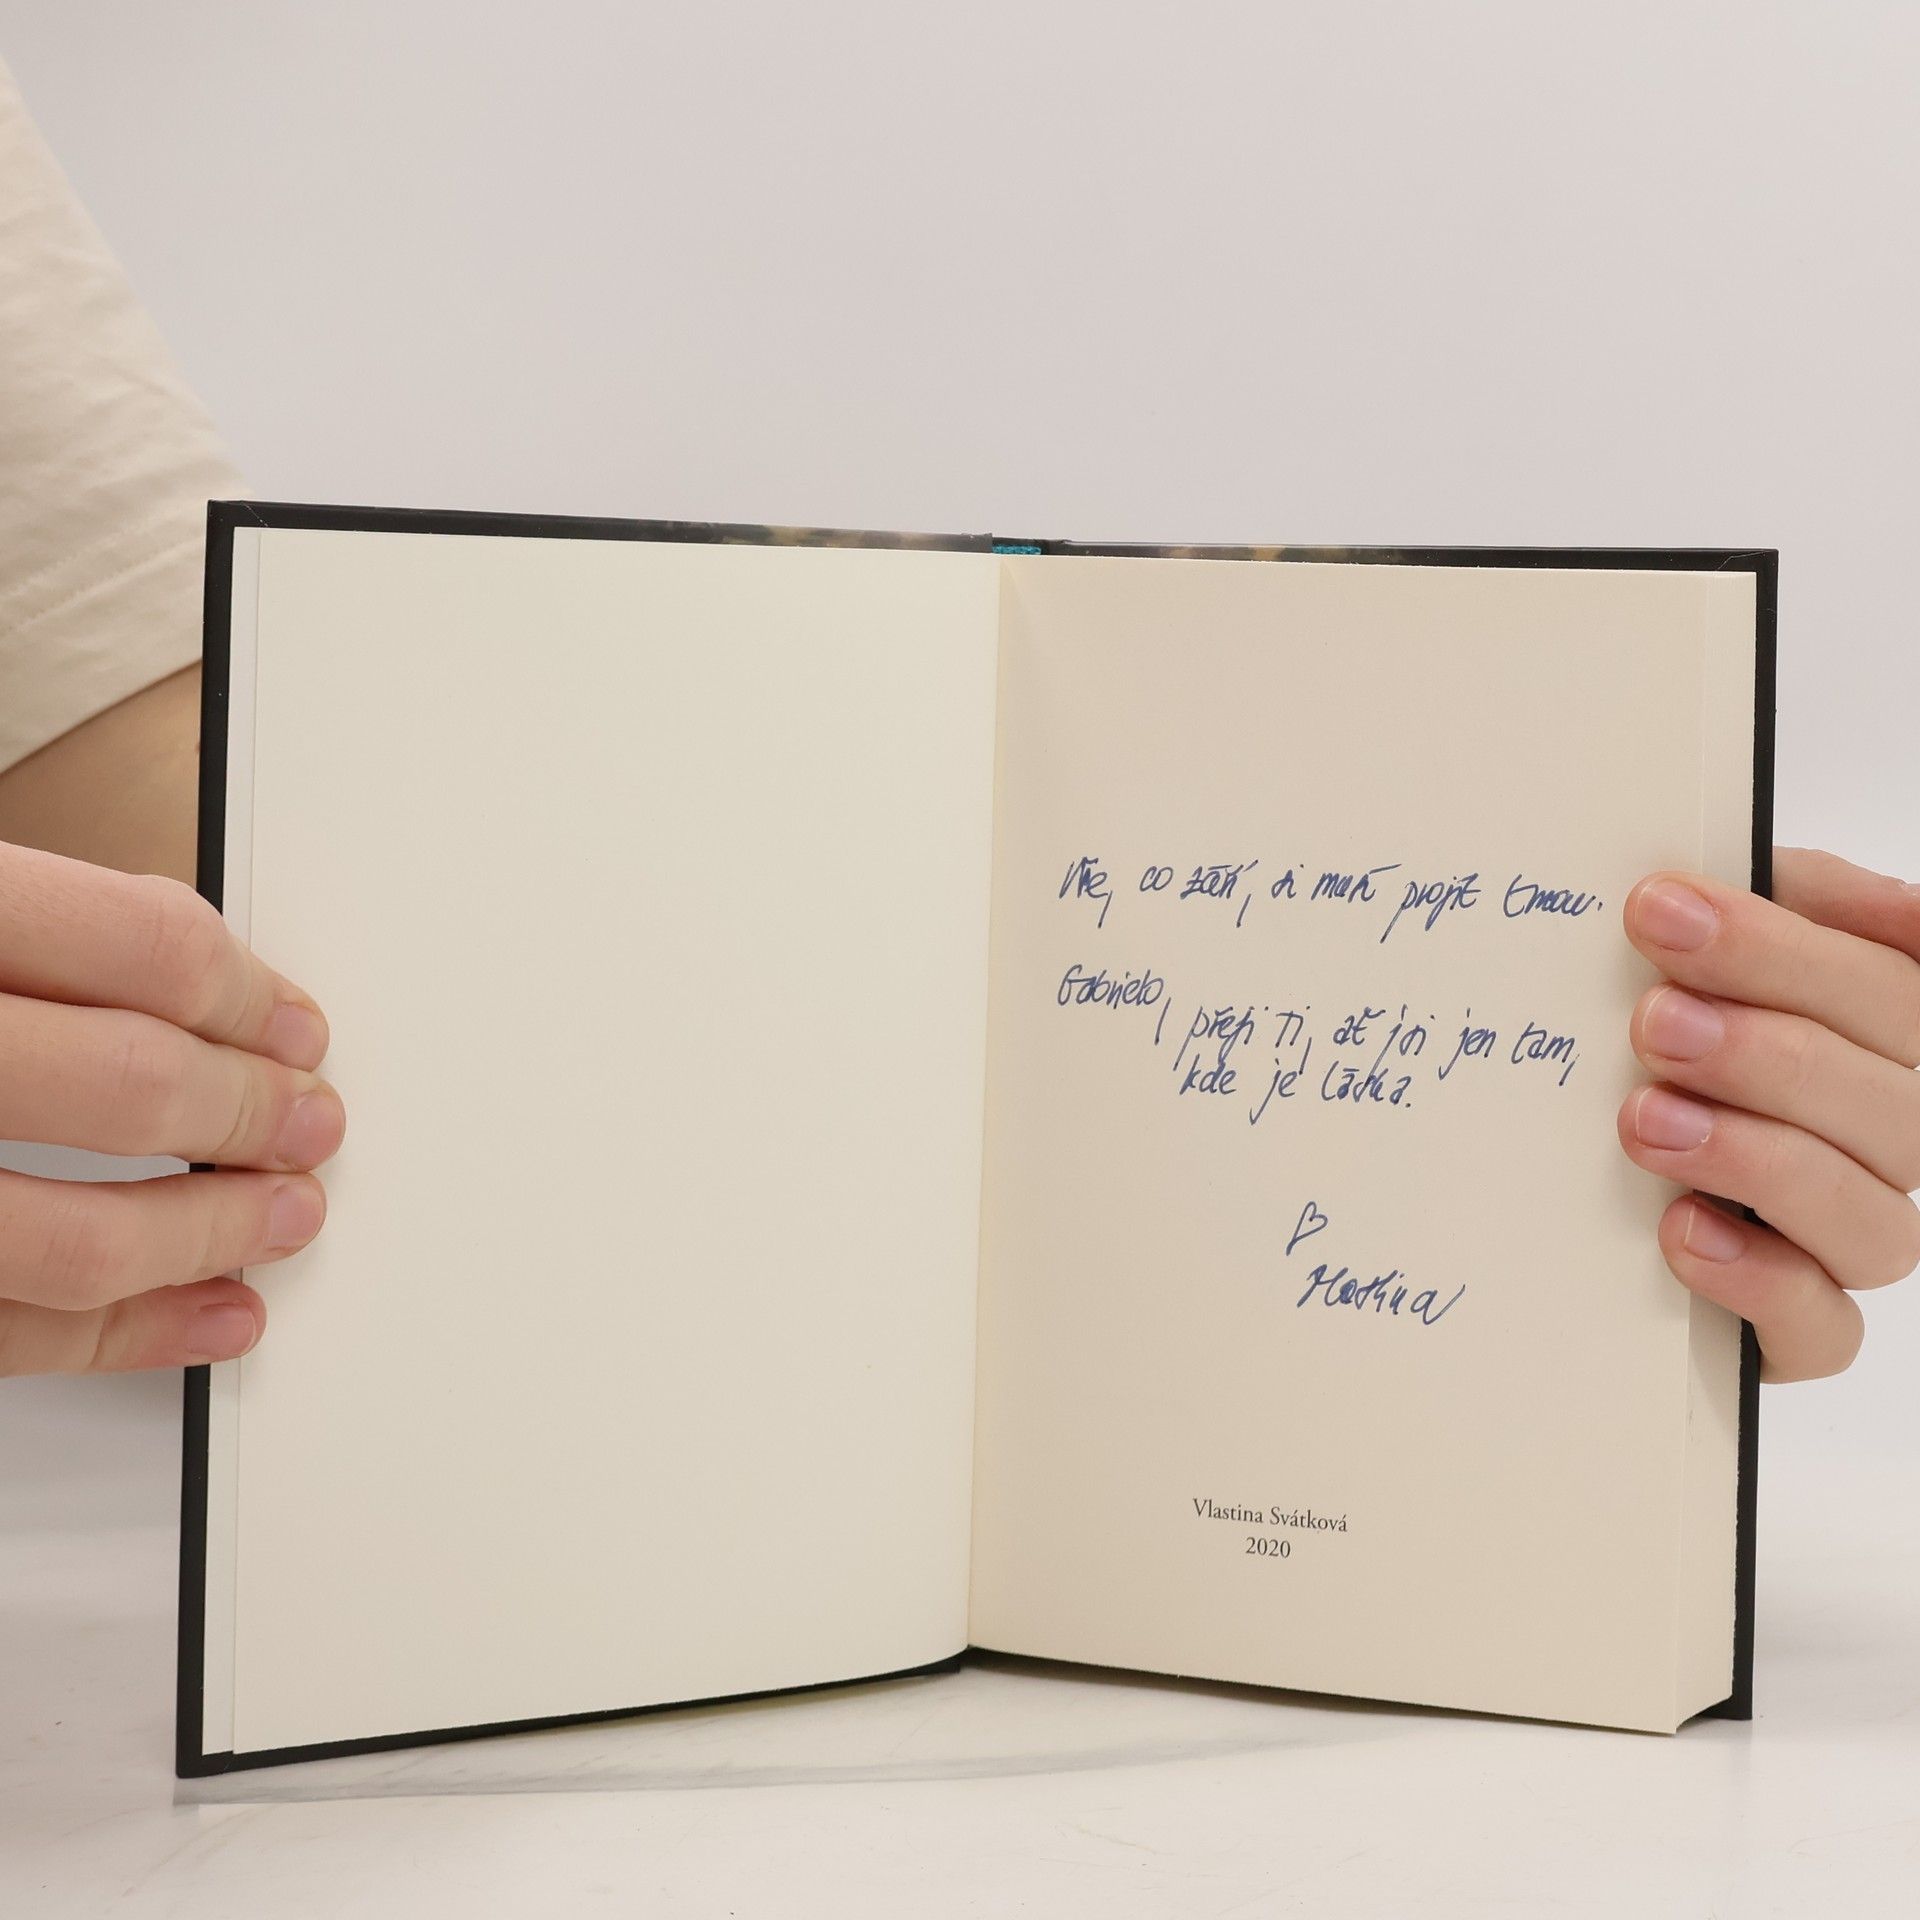 Vše, co září, si musí projít tmou.
Gabrielo,
přeji Ti, ať jsi jen tam,
kde je láska.
Vlastina
Vlastina Svátková
2020